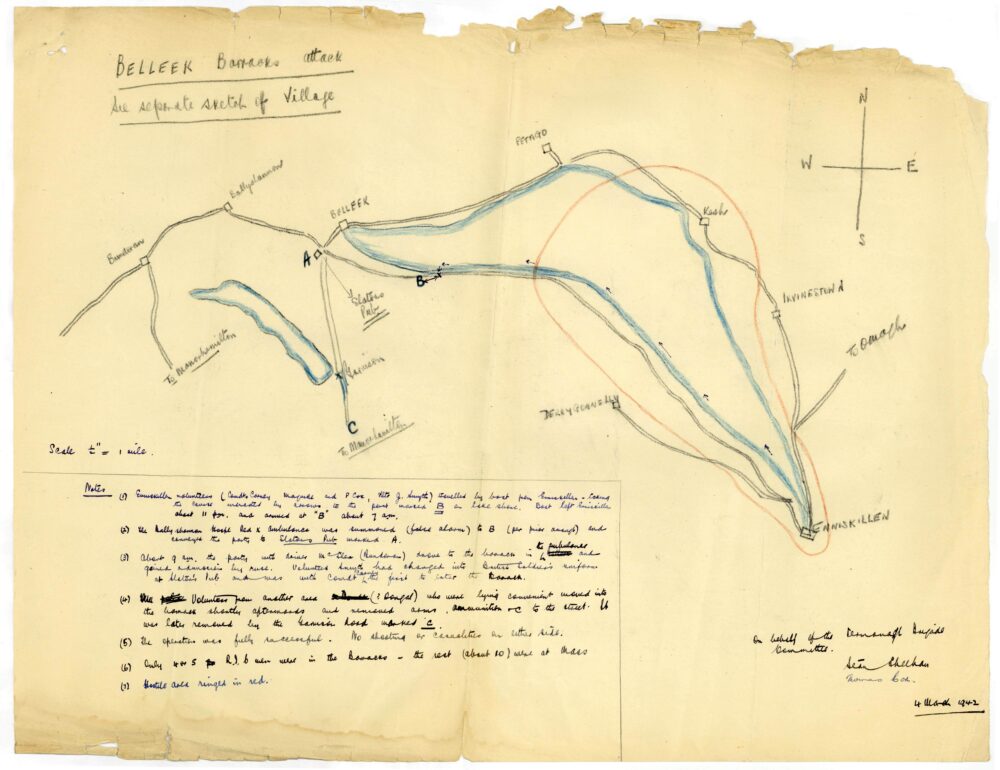 BELLEEK Barracks attack
See separate sketch of Village
N
W E
S
PETTAGO
Ballyshannon
BELLEEK
Kesh
Bundoran
A
B
Slatens
Pub
IRVINESTOWN
To Omagh
To Manorhamilton
Garrison
DERRYGONNELLY
C
To Manorhamilton
Scale ½" = 1 mile.
ENNISKILLEN
Notes
(1) Enniskillen volunteers (Comdt Carney, Maguire and P Cox, J. Smyth) travelled by boat from Enniskillen - taking
the course indicated by arrows to the point marked B on lake shore. Boat left Enniskillen
about 11 pm. and arrived at "B" about 7 am.
(2) The Ballyshannon Red X Ambulance was summoned (false alarm) to B (per prior) and
conveyed the party to Slatens Pub marked A.
(3) About 9 am. the party with driver (Bundoran) drove to the barrack in the ambulance and
gained admission by ruse. Volunteer Smyth had changed into British Soldier's uniform
at Slatens Pub and was with Comdt Carney the first to enter the Barrack.
(4) Volunteers from another area (? Donegal) who were lying convenient moved into
the barrack shortly afterwards and removed arms, ammunition &C to the street. It
was later removed by the Garrison Road marked C.
(5) The operation was fully successful. No shooting or casualties on either side.
(6) Only 4 or 5 R.I.C men were in the Barracks - the rest (about 10) were at Mass
(7) Hostile area ringed in red.
On behalf of the Fermanagh Brigade
Committee.
Seán Sheehan
Thomas Cox.
4 March 1942